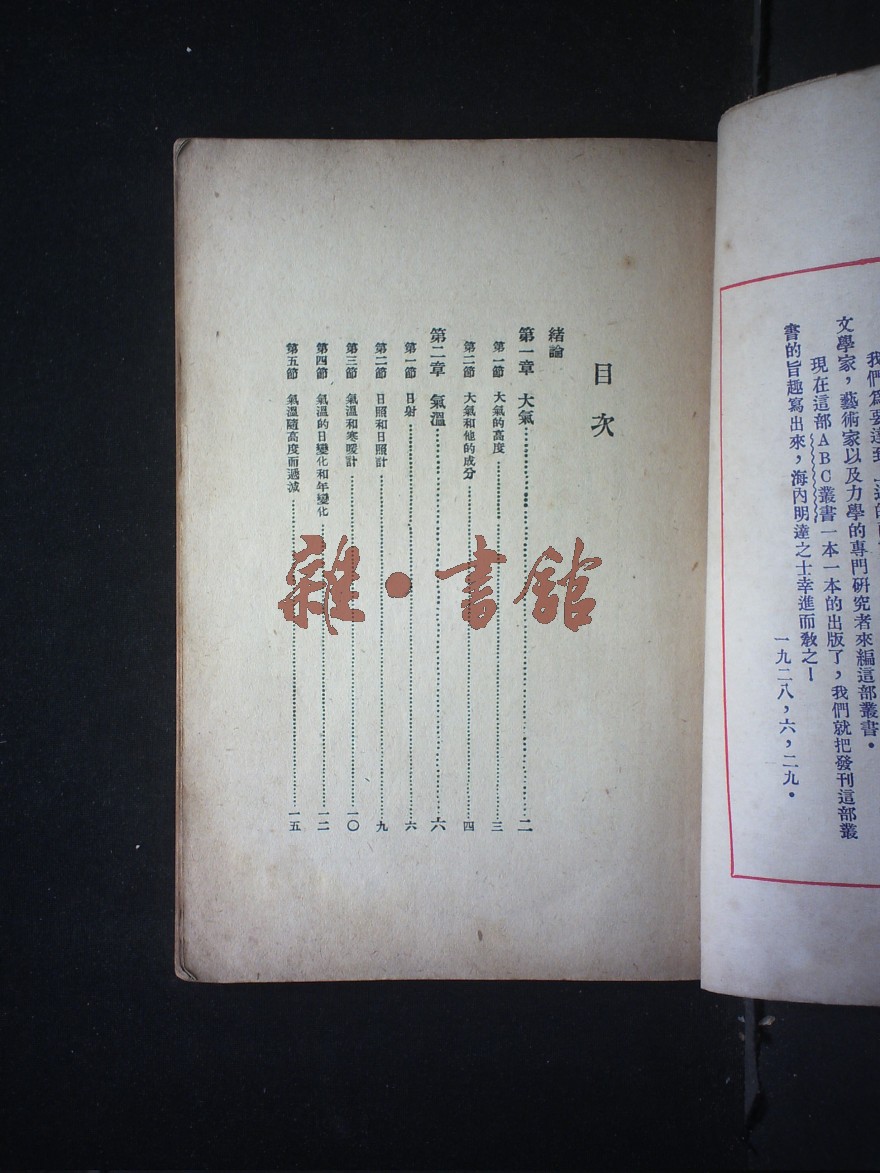 我們爲要達到上述的
文學家，藝術家以及力學的專門研究者來編這部叢書。
現在這部ABC叢書一本一本的出版了，我們就把發刊這部叢
書的旨趣寫出來，海內明達之士幸進而教之！
一九二八，六，二九。
目次
緒論
第一章 大氣……二
第一節 大氣的高度……三
第二節 大氣和他的成分……四
第二章 氣溫……六
第一節 日射……六
第二節 日照和日照計……九
第三節 氣溫和寒暖計……一〇
第四節 氣溫的日變化和年變化……一二
第五節 氣溫隨高度而遞減……一五
雜·書館